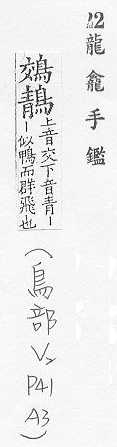 12 龍龕手鑑
鵁鶄上音交下音青丨
丨似鴨而群飛也
(鳥部 V2 P41 A3)